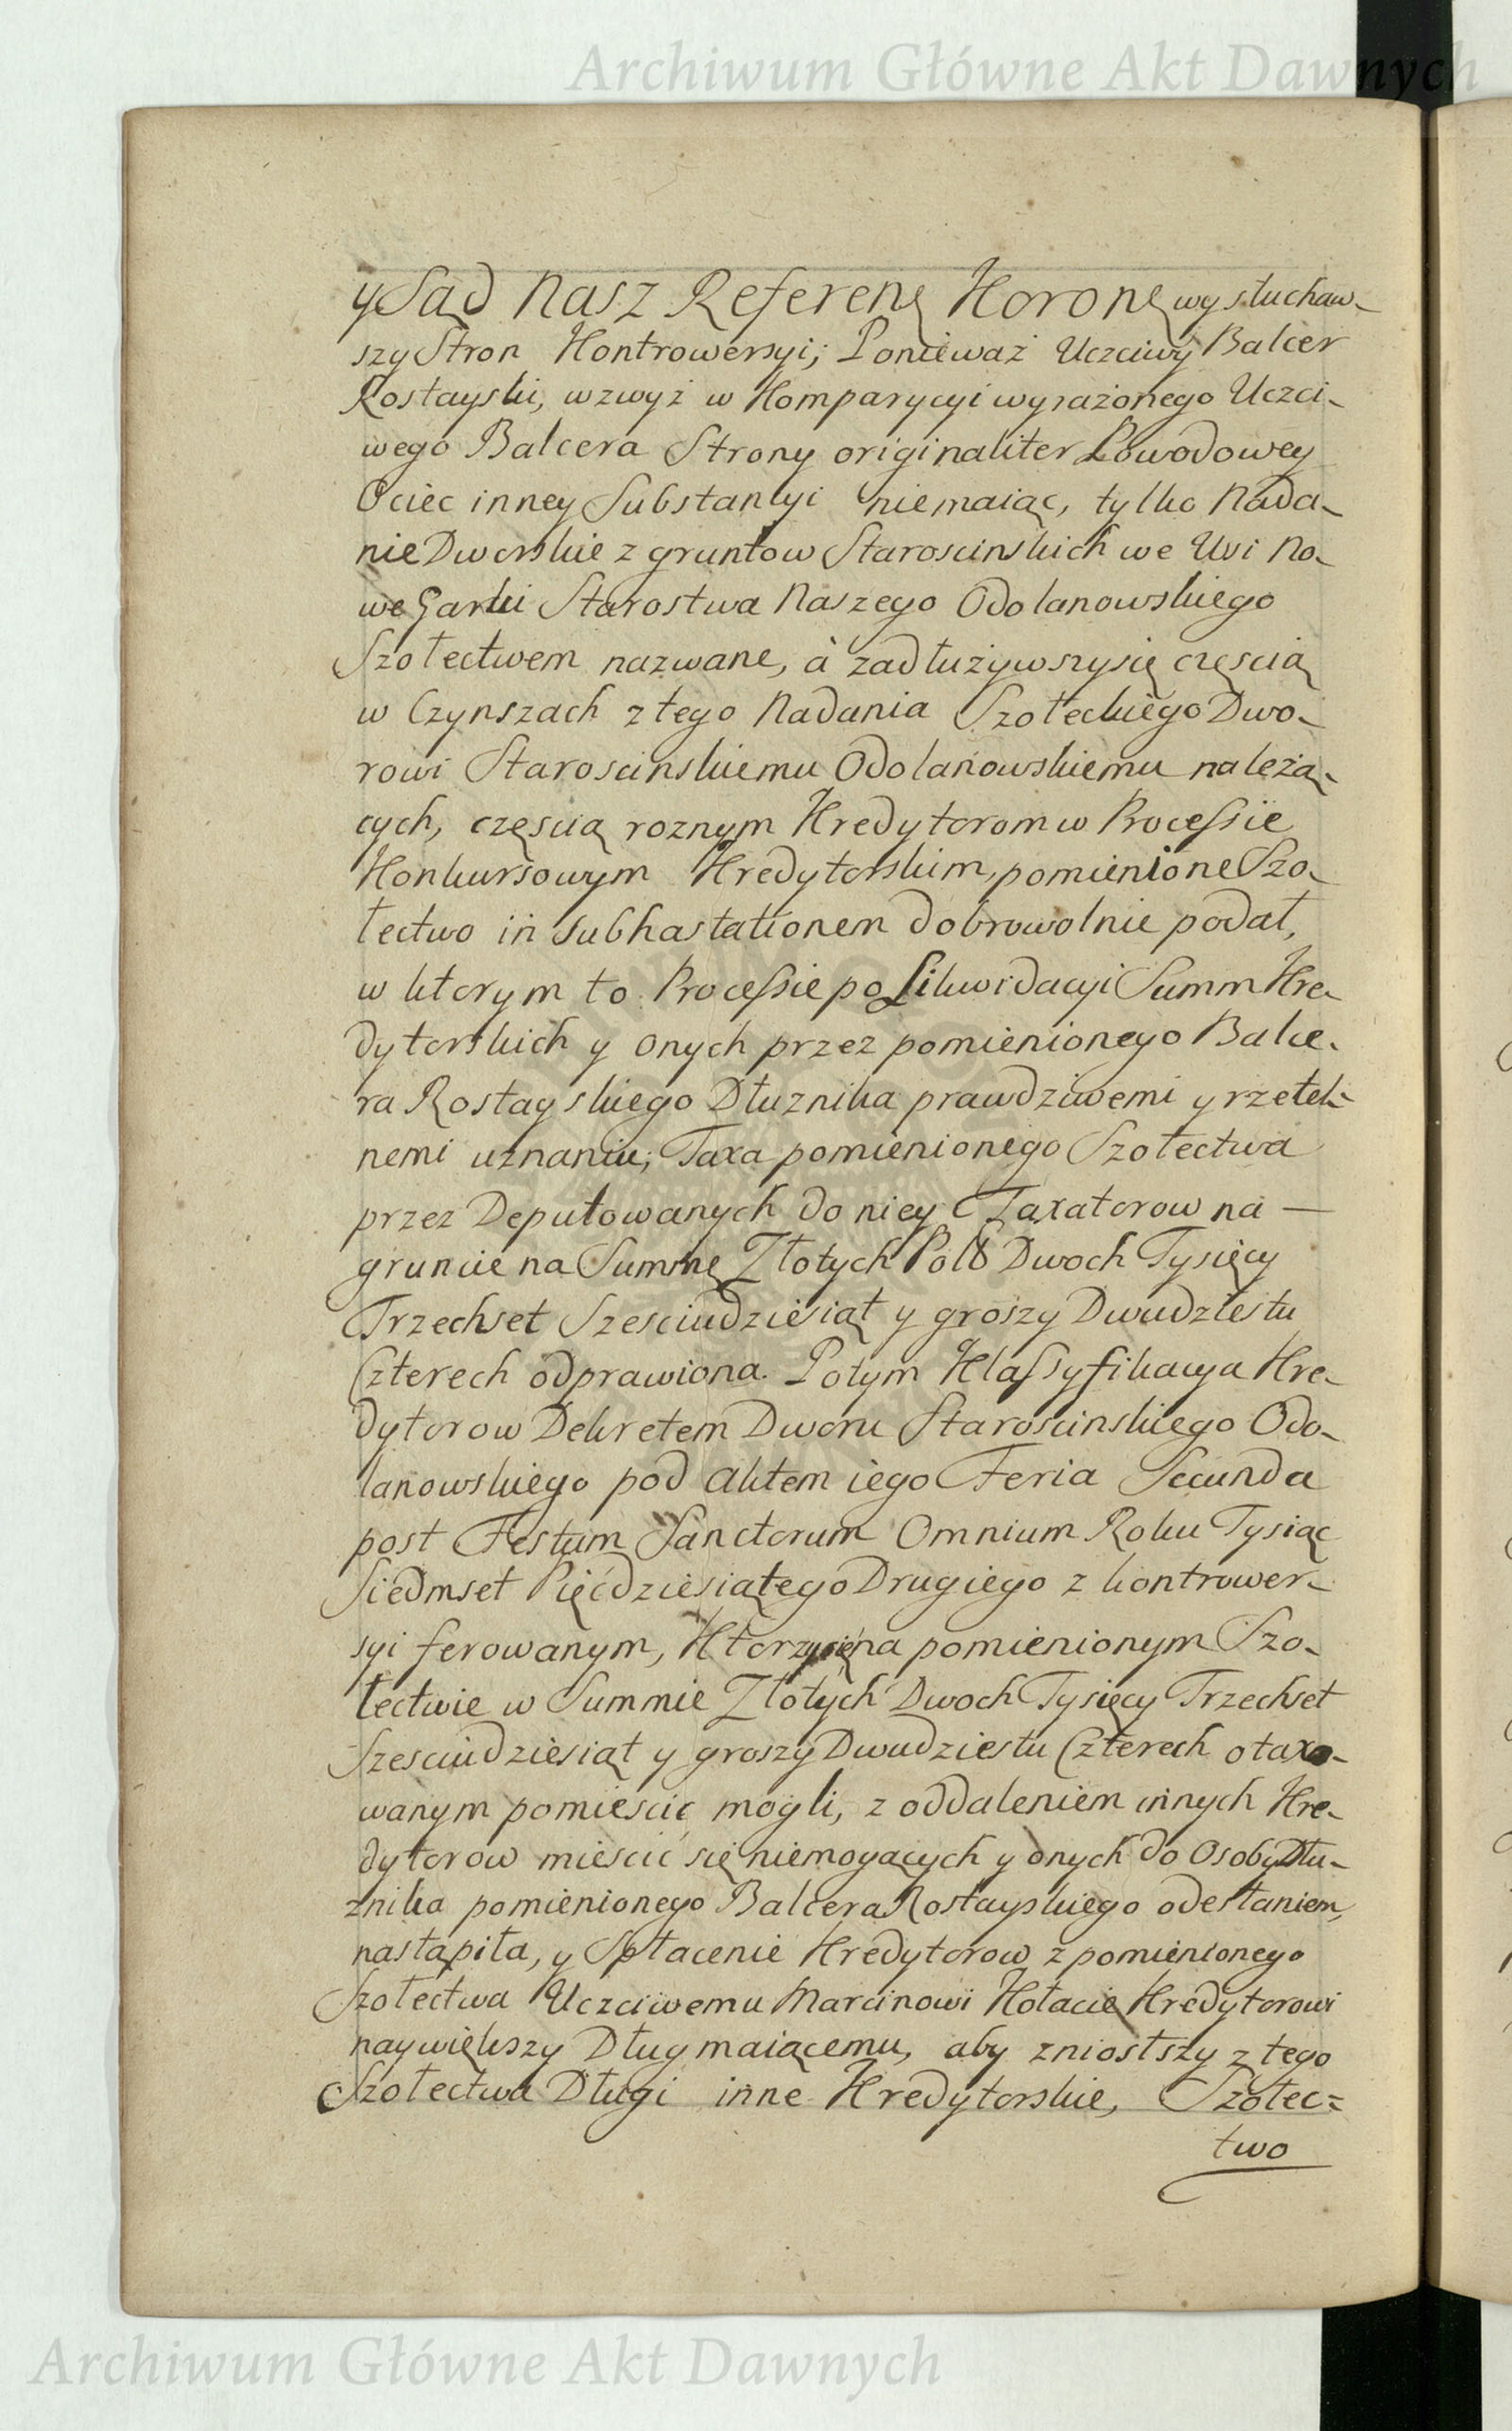 Archiwum Główne Akt Dawnych
y Sąd Nasz Referenę Koronę wysłuchaw-
szy Stron Kontrowersyi; Ponieważ Uczciwy Balcer
Rostayski, wzwyż w Komparycyi wyrażonego Uczci-
wego Balcera Strony originaliter Powodowey
Ociec inney Substancyi niemaiąc, tylko Nada-
nie Dworskie z gruntow Staroscinskich we Wsi No-
we Garki Starostwa Naszego Odolanowskiego
Szołectwem nazwane, à zadłużywszysię częscią
w Czynszach z tego Nadania Szołeckiego Dwo-
rowi Staroscinskiemu Odolanowskiemu należą-
cych, częscią roznym Kredytorom w Processie
Konkursowym Kredytorskim, pomienione Szo-
łectwo in subhastationem dobrowolnie podał,
w ktorym to Processie po Likwidacyi Summ Kre-
dytorskich y onych przez pomienionego Balce-
ra Rostayskiego Dłuznika prawdziwemi y rzetel-
nemi uznaniu; Taxa pomienionego Szołectwa
przez Deputowanych do niey Taxatorow na —
gruncie na Summę Złotych Pols Dwoch Tysięcy
Trzechset Szesciudziesiąt y groszy Dwudziestu
Czterech odprawiona. Potym Klassyfikacya Kre-
dytorow Dekretem Dworu Staroscinskiego Odo-
lanowskiego pod Aktem iego Feria Secunda
post Festum Sanctorum Omnium Roku Tysiąc
Siedmset Pięćdziesiątego Drugiego z kontrower-
syi ferowanym, Ktorzysię na pomienionym Szo-
łectwie w Summie Złotych Dwoch Tysięcy Trzechset
Szesciudziesiąt y groszy Dwudziestu Czterech otaxo-
wanym pomiescić mogli, z oddaleniem innych Kre-
dytorow miescić się niemogących y onych do Osoby Dłu-
znika pomienionego Balcera Rostayskiego odesłaniem,
nastąpiła, y Spłacenie Kredytorow z pomienionego
Szołectwa Uczciwemu Marcinowi Kołacie Kredytorowi
naywiększy Dług maiącemu, aby zniosłszy z tego
Szołectwa Długi inne Kredytorskie, Szołec=
two
Archiwum Główne Akt Dawnych